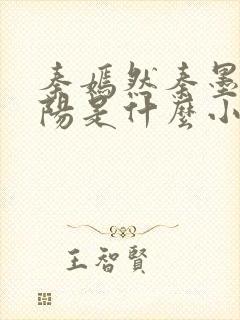 秦嫣然秦墨
陽是什麼小
王智賢